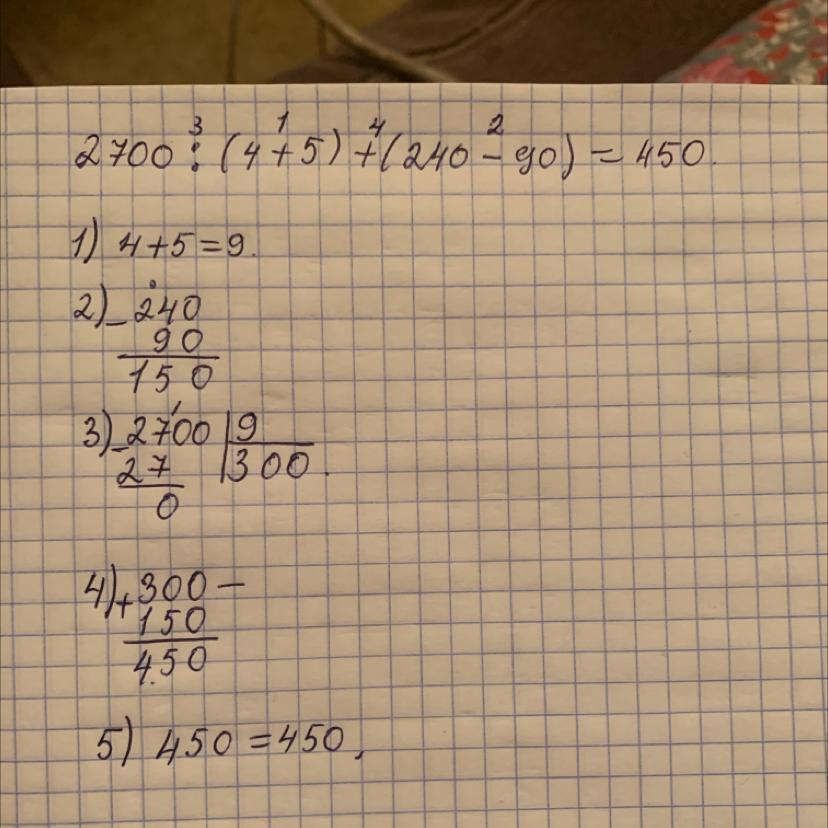 3 1 4 2
2700 : (4+5) + (240 - 90) = 450.
1) 4+5=9.
2) - 240
90
150
3) - 2700 | 9
27 | 300.
0
4) + 300 -
150
450
5) 450 = 450,